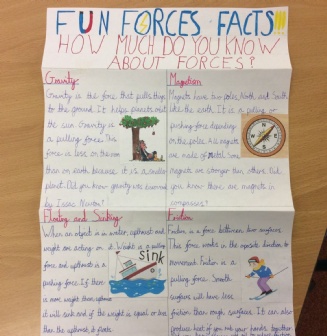 FUN FORCES FACTS!!!
HOW MUCH DO YOU KNOW
ABOUT FORCES?
Gravity:
Gravity is the force that pulls things
to the ground. It helps planets orbit
the sun. Gravity is
a pulling force. This
force is less on the moon
than on earth because it is a smaller
planet. Did you know gravity was discovered
by Issac Newton?
Magnetism
Magnets have two poles, North and South
like the earth. It is a pulling or
pushing force depending
on the poles. All magnets
are made of metal. Some
magnets are stronger than others. Did
you know there are magnets in
compasses?
Floating and Sinking
When an object is in water, upthrust and
weight are acting on it. Weight is a pulling
force and upthrust is a
pushing force. If there
is more weight than upthrust
it will sink and if the weight is equal or less
than the upthrust, it floats.
sink
Friction
Friction is a force between two surfaces.
This force works in the opposite direction to
movement. Friction is a
pulling force. Smooth
surfaces will have less
friction than rough surfaces. It can also
produce heat if you rub your hands together.